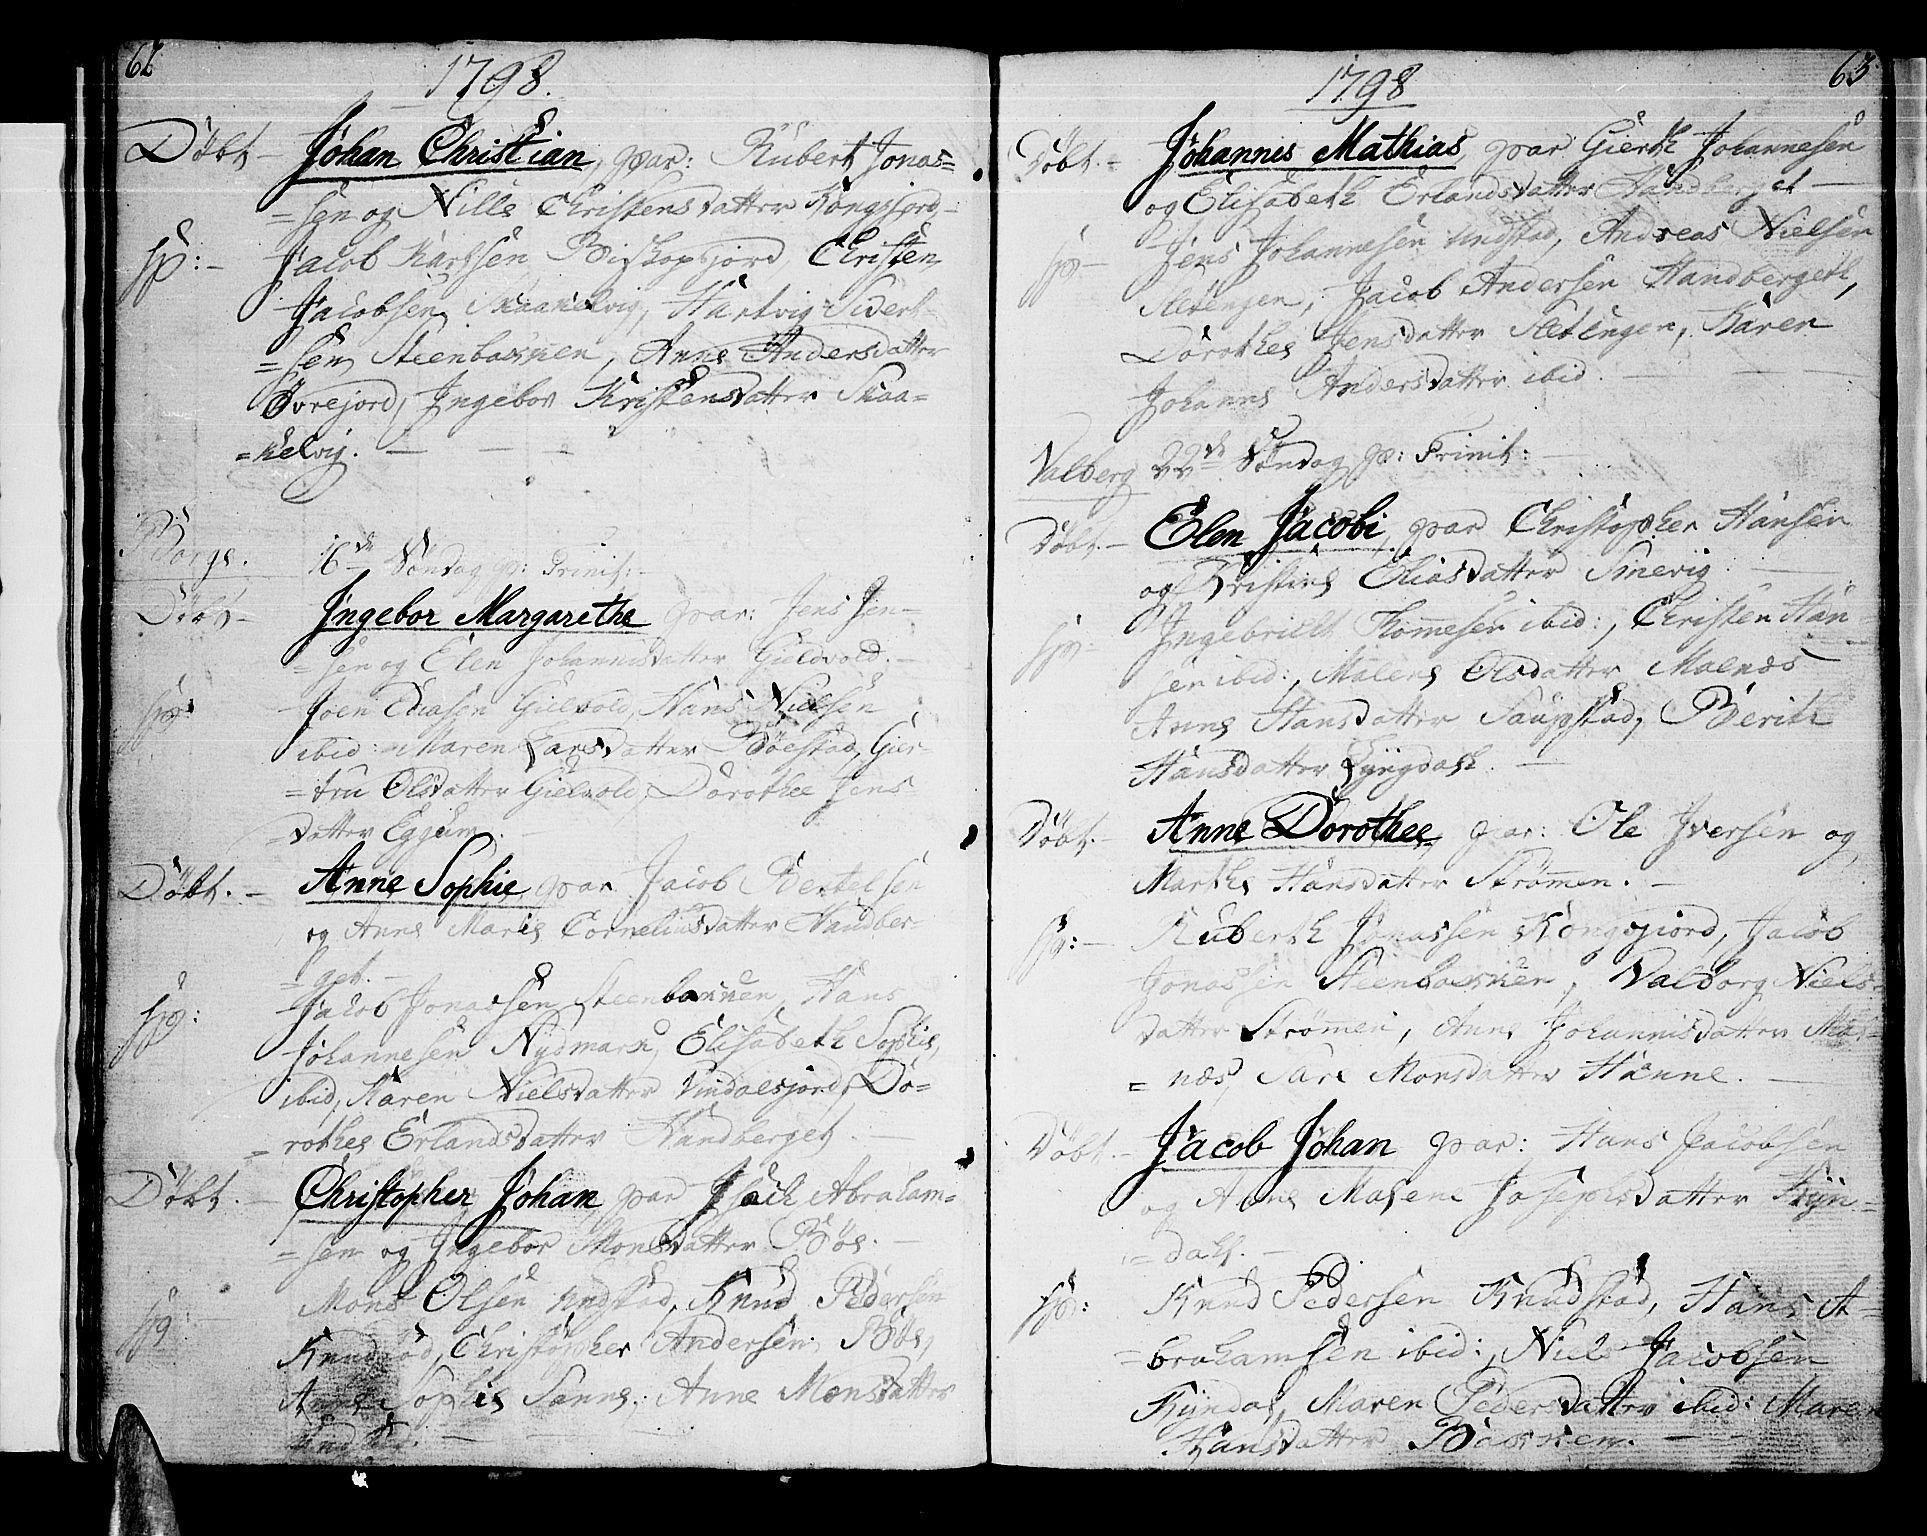 62
1798.
Döbt - Johan Christian, par: Rubert Jonas-
=sen og Nille Christensdatter Kongsjord,-
sp:- Jacob Karlsen Biskopsjord, Christen
Jacobsen Skaarelvig, Hartvig Sivert-
=sen Steenbannen, Anne Andersdatter
Övrejord, Ingebor Kristensdatter Skaa-
=kelvig.
Borge. 16de Söndag p: Trinit:-
Döbt- Ingebor Margarethe par: Jens Jen-
=sen og Elen Johannisdatter Gieldvold.-
sp: Joen Eliasen Gielvold, Hans Nielsen
ibid: Maren Larsdatter Böestad, Gier-
=tru Olsdatter Gielvold, Dorothee Jens
=datter Eggum.
Döbt.- Anne Sophie, par Jacob Bertelsen
og Anne Marie Corneliusdatter Handber-
=get.-
sp: Jacob Jonassen Steenbannen, Hans
Johannesen Nydmark, Elisabeth Sophie,
ibid, Karen Nielsdatter Vindalsjord, Do-
=rothee Erlandsdatter Handberget.
Döbt.- Christopher Johan, par Isach Abraham-
=sen og Ingebor Monsdatter Böe.
sp: Mons Olsen Undstad, Knud Pedersen
Knudstad, Christopher Andersen Böe,
Anne Sophie Sanne, Anne Monsdatter

63.
1798
Döbt.- Johannis Mathias, par Gierth Johannesen
og Elisabeth Erlandsdatter Handberget
sp- Jens Johannesen Undstad, Andreas Nielsen
Sletengen, Jacob Andersen Handbergeth,
Dorothea Jensdatter Sletengen, Karen
Johanne Andersdatter ibid.
Valberg 22de Söndag p: Trinit:
Döbt.- Elen Jacobi, par Christopher Hansen
og Kristine Eliasdatter Smevig.
sp: Ingebrilt Tommesen ibid:, Christen Han-
sen ibid:, Malene Olsdatter Malnæs
Anne Hansdatter Saupstad, Berith
Hansdatter Lyngdahl.
Döbt.- Anne Dorothee, par: Ole Iversen og
Marthe Hansdatter Strömen.-
sp:- Ruberth Jonassen Kongsjord, Jacob
Jonassen Steenbannen, Valborg Niels-
datter Strömen, Anne Johannisdatter Mar-
=næs, Sare Monsdatter Hanne.
Döbt.- Jacob Johan par: Hans Jacobsen
og Anne Malene Josepsdatter Kyn-
=dahl.-
sp: Knud Pedersen Knudstad, Hans A-
=brahamsen ibid:, Niels Jacobsen
Kyndal, Maren Pedersdatter ibid: Maren
Hansdatter